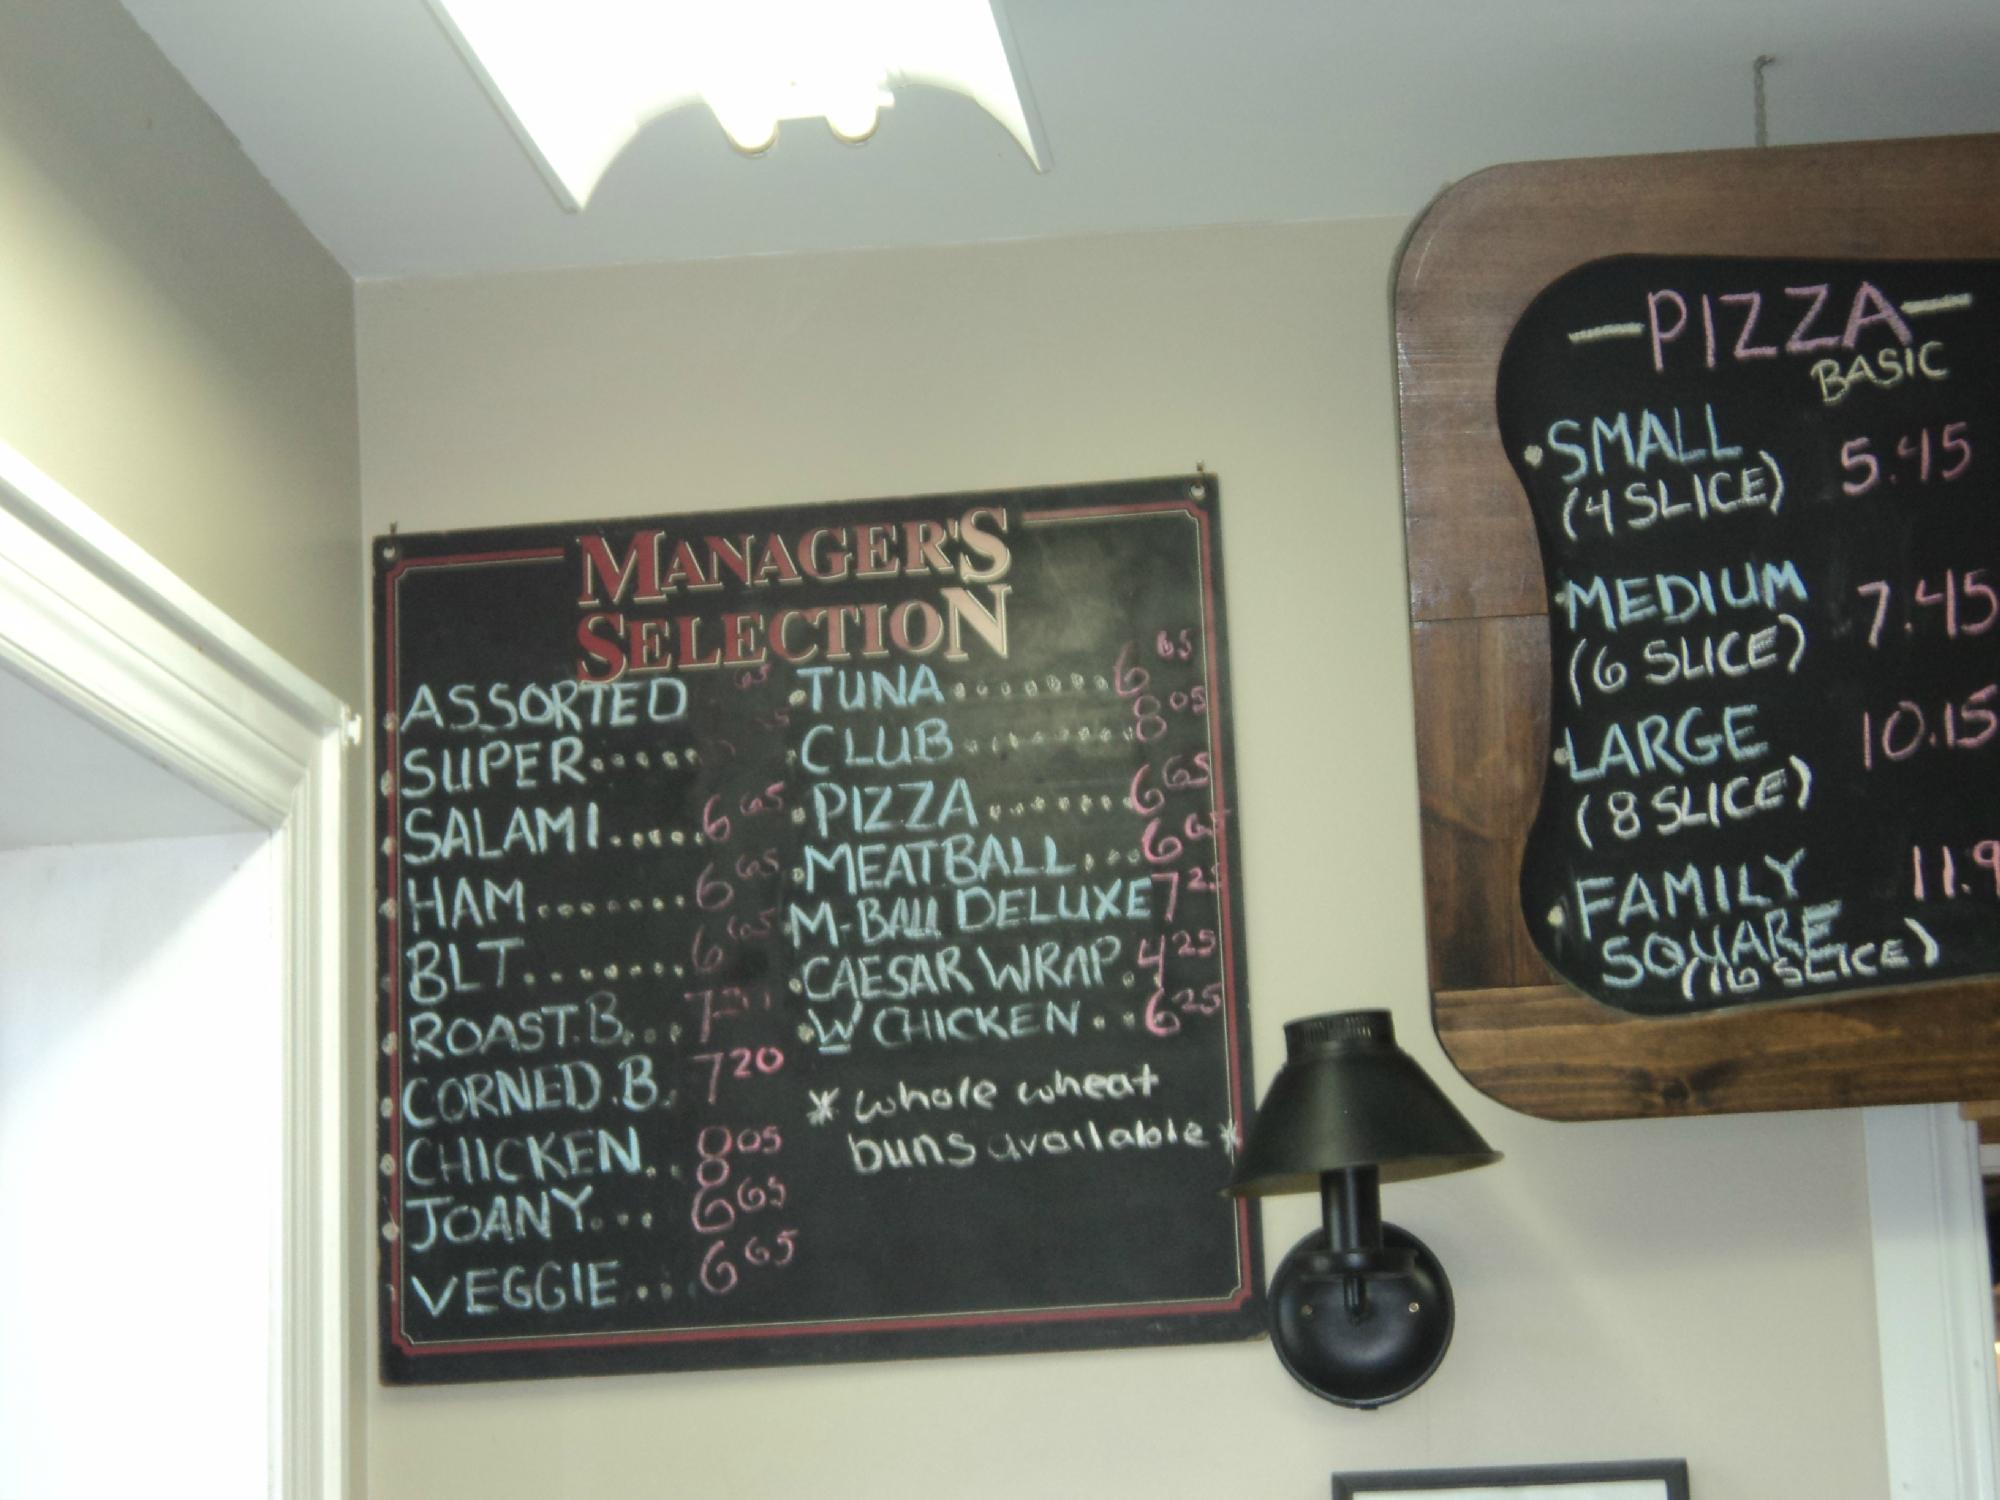 MANAGER'S
SELECTION
ASSORTED 65
SUPER.....
SALAMI..... 6 65
HAM....... 6 65
BLT....... 6 65
ROAST.B... 7
CORNED.B. 7 20
CHICKEN.. 8 05
JOANY... 6 65
VEGGIE... 6 65
TUNA......... 6 65
CLUB........ 8 05
PIZZA....... 6 65
MEATBALL... 6 65
M-BALL DELUXE 7 25
CAESAR WRAP. 4 25
W CHICKEN.. 6 25
* whole wheat
buns available *
—PIZZA—
BASIC
SMALL 5.45
(4 SLICE)
MEDIUM 7.45
(6 SLICE)
LARGE 10.15
(8 SLICE)
FAMILY 11.9
SQUARE
(16 SLICE)